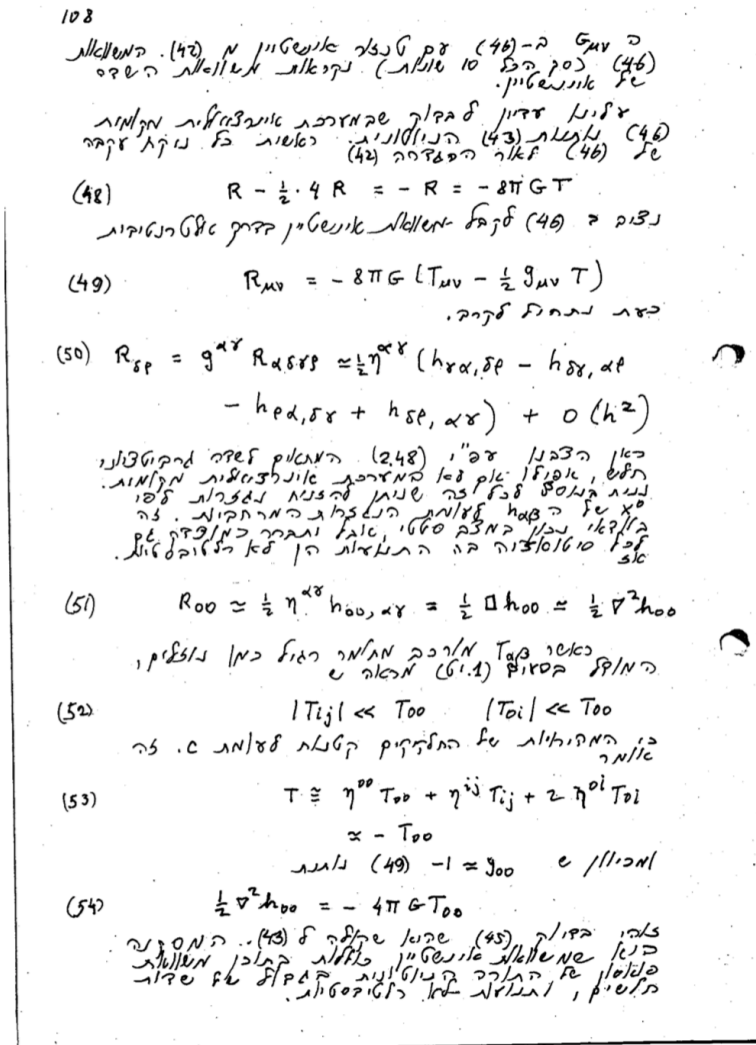 108
ה G_{μν} ב-(46) עם טנזור אינשטיין מ (42). המשוואות
(46) (סך הכל 10 שונות) נקראות משוואות השדה
של אינשטיין.
עלינו עדיין לבדוק שבמערכת אינרציאלית מקומית
(46) נותנת (43) הניוטונית. ראשית כל ניקח עקבה
של (46) לאור ההגדרה (42)
(48) R - ½·4 R = - R = - 8π G T
נציב ב (46) לקבל משוואת אינשטיין בדרך אלטרנטיבית
(49) R_{μν} = - 8πG (T_{μν} - ½ g_{μν} T)
כעת נתחיל לקרב.
(50) R_{δρ} = g^{αγ} R_{αδγρ} ≃ ½ η^{αγ} (h_{γα,δρ} - h_{δγ,αρ}
- h_{ρα,δγ} + h_{δρ,αγ}) + O(h²)
כאן הצבנו עפ"י (2.48) המתאים לשדה גרביטציוני
חלש, אפילו אם לא במערכת אינרציאלית מקומית.
נניח בנוסף לכל זה שניתן להזניח נגזרות לפי
x⁰ של ה h_{αβ} לעומת הנגזרות המרחביות. זה
בוודאי נכון במצב סטטי, אבל יתברר כמוצדק גם
לכל סיטואציה בה התנועות הן לא רלטיביסטיות.
אז
(51) R₀₀ ≃ ½ η^{αγ} h_{00,αγ} = ½ □h₀₀ ≃ ½ ∇²h₀₀
כאשר T_{αβ} מורכב מחומר רגיל כמו נוזלים,
המודל בסעיף (1.יט) מראה ש
(52) |T_{ij}| << T₀₀ |T_{0i}| << T₀₀
כי המהירויות של החלקיקים קטנות לעומת c. זה
אומר
(53) T ≅ η⁰⁰ T₀₀ + η^{ij} T_{ij} + 2 η^{0i} T_{0i}
≈ - T₀₀
ומכיוון ש g₀₀ ≈ -1 (49) נותנת
(54) ½ ∇²h₀₀ = - 4π G T₀₀
זוהי בדיוק (45) שהיא שקולה ל (43). המסקנה
היא שמשוואות אינשטיין כוללות בתוכן משוואת
פואסון של התורה הניוטונית בגבול של שדות
חלשים, ותנועות לא רלטיביסטיות.